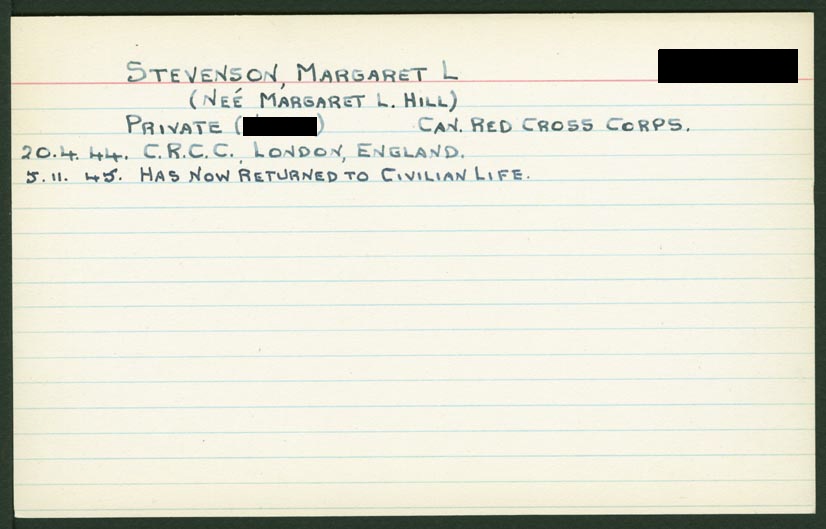 STEVENSON, MARGARET L
(NEÉ MARGARET L. HILL)
PRIVATE ( ) CAN. RED CROSS CORPS.
20.4.44. C.R.C.C., LONDON, ENGLAND.
5.11.45. HAS NOW RETURNED TO CIVILIAN LIFE.